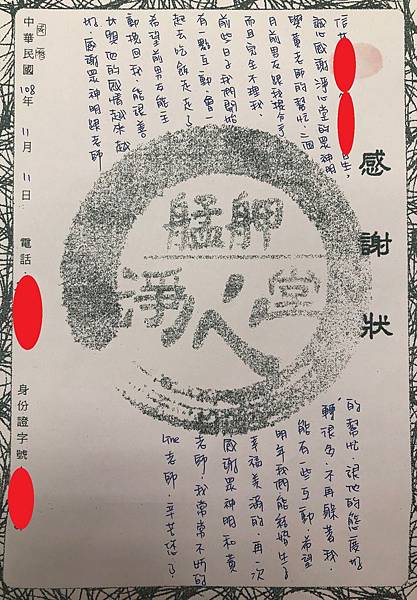 感謝狀
信
生,
誠心感謝淨心堂的眾神明
與黃老師的幫忙。一個
月前男友跟我提分手
而且完全不理我,
前些日子我們開始
有一點互動,會一
起去吃飯走走了
希望前男友能主
動挽回我,能
與他的感情越來越
好,感謝眾神明跟老師
的幫忙,他的態度好
轉很多,不再躲著我,
能有一些互動,希望
明年我們能結婚生子
幸福美滿的,再一次
感謝眾神明和黃
老師,我常常不斷的
line老師,辛苦您了
國曆
中華民國108年11月11日 電話: 身份證字號:
艋舺
淨心堂